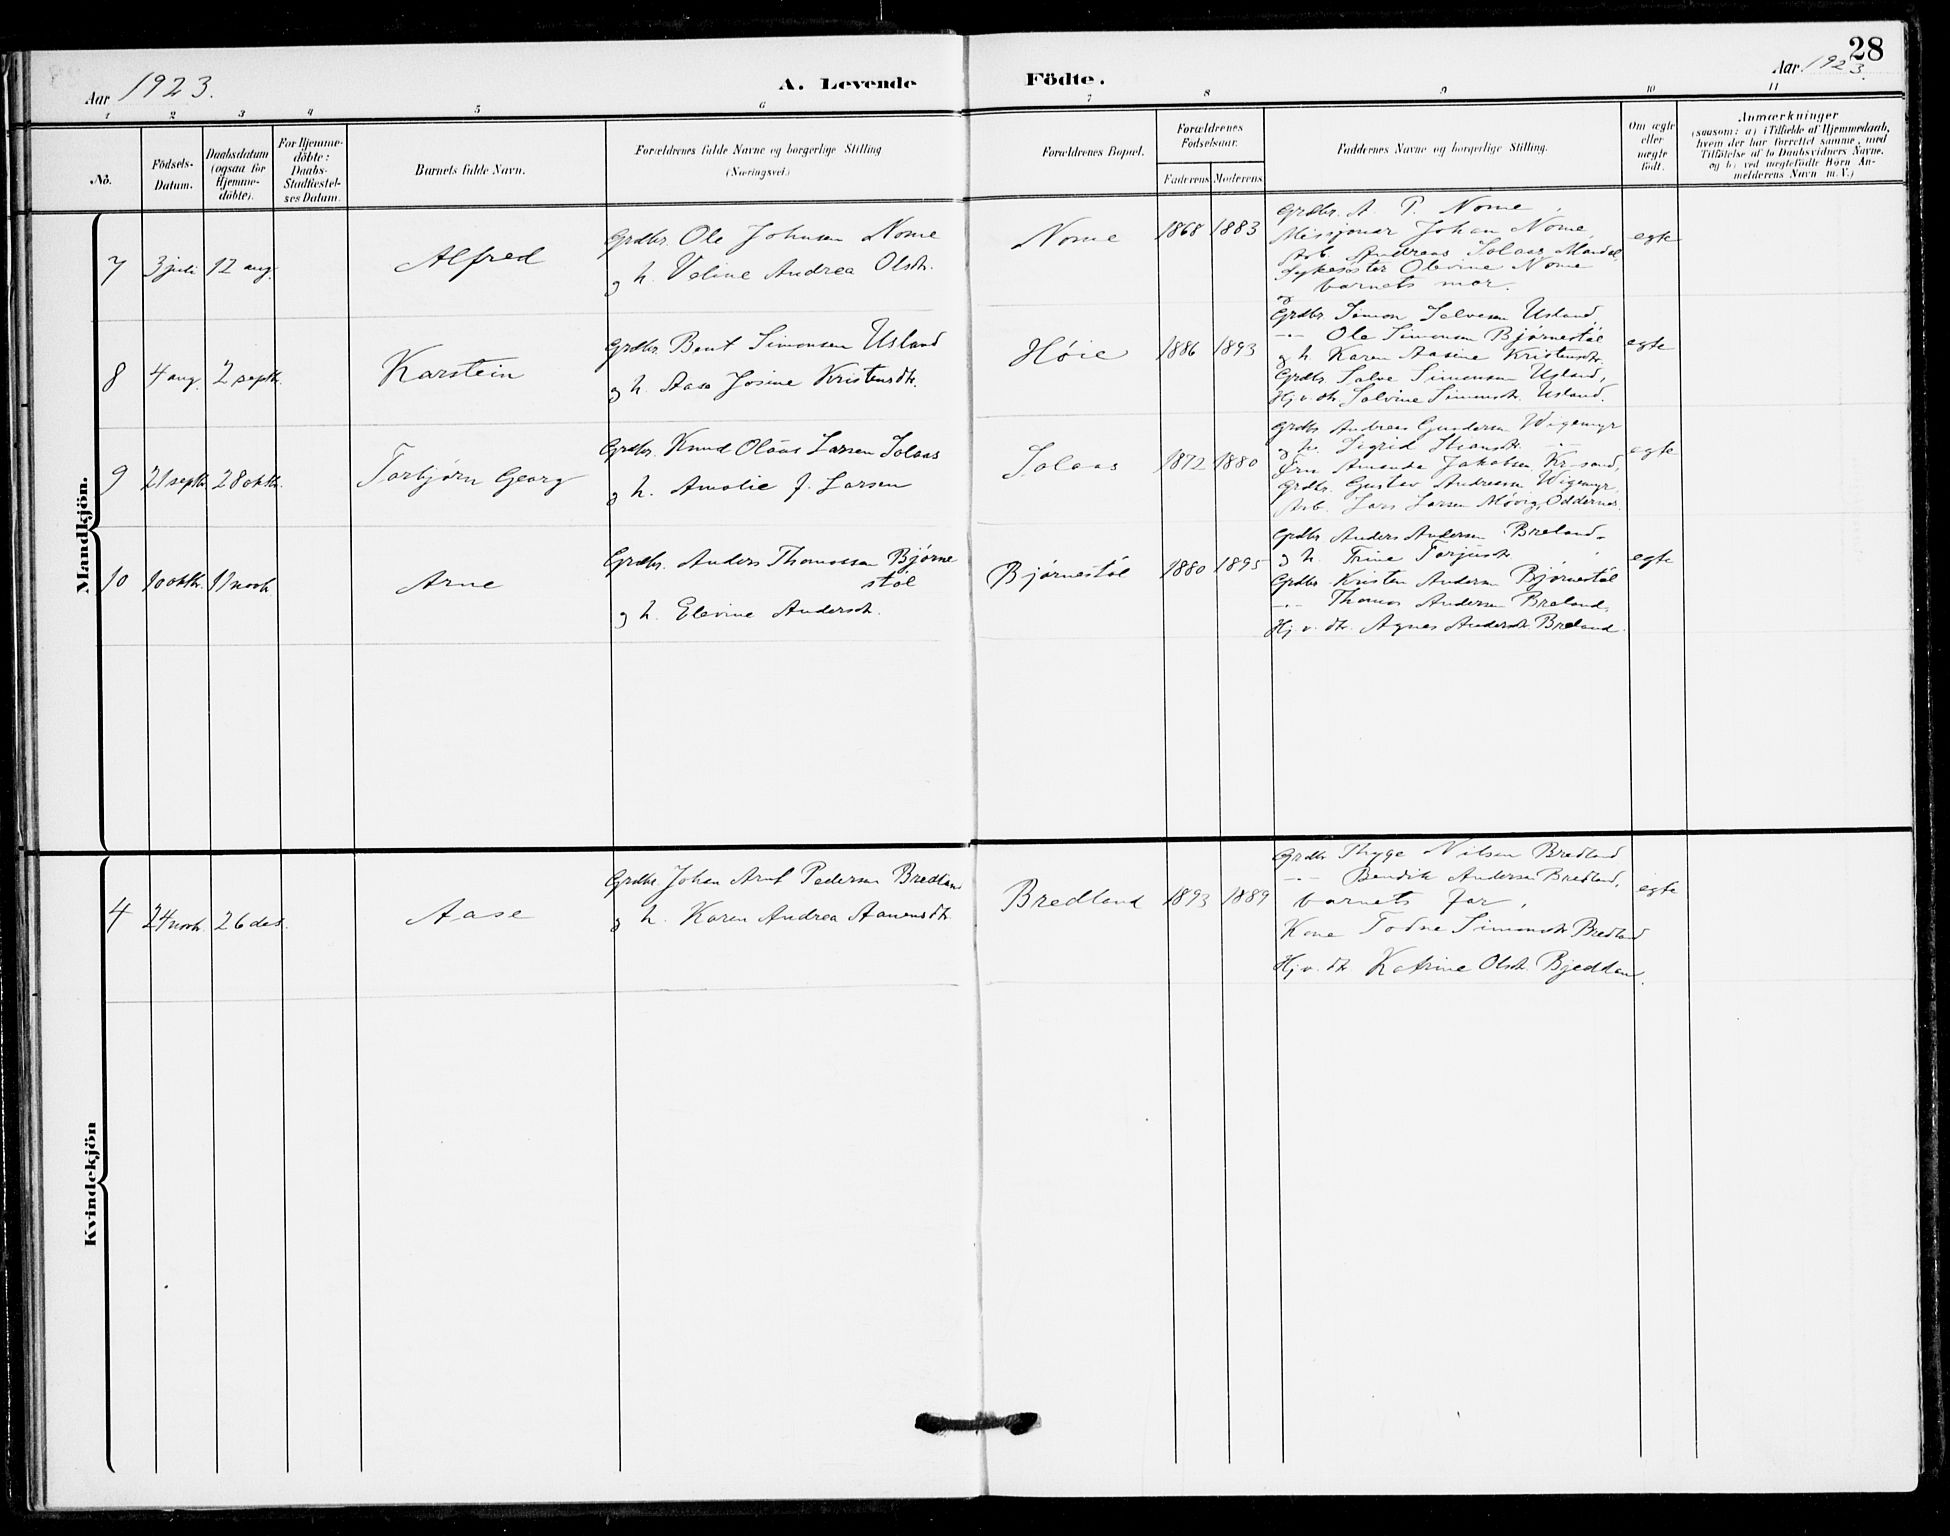 Aar 1923. A. Levende Födte. Aar 1923. 28
1 2 3 4 5 6 7 8 9 10 11
No.
Födsels-Datum.
Daabsdatum (ogsaa for Hjemme-döbte).
For Hjemme-döbte: Daabs-Stadfæstel-ses Datum.
Barnets fulde Navn.
Forældrenes fulde Navne og borgerlige Stilling
(Næringsvei.)
Forældrenes Bopæl.
Forældrenes Födselsaar.
Faderens Moderens
Faddernes Navne og borgerlige Stilling.
Om ægte eller uægte födt.
Anmærkninger
(saasom: a) i Tilfælde af Hjemmedaab,
hvem der har forrettet samme, med
Tilföielse af to Daabsvidners Navne.
og b) ved uægtefödte Börn An-
melderens Navn m. V.)
Mandkjön.
7 3 juli 12 aug. Alfred
Grdbr. Ole Johnsen Nome
og h. Veline Andrea Olsdtr.
Nome 1868 1883
Grdbr. A. P. Nome,
Missjonær Johan Nome,
Arb. Andreas Solaas, Mandal,
Sykesøster Olevine Nome
og barnets mor.
egte
8 4 aug. 2 septbr. Karstein
Grdbr. Bent Simonsen Usland
og h. Aasa Josine Kristensdtr.
Høie 1886 1893
Grdbr. Simon Salvesen Usland,
-"- Ole Simonsen Bjørnestøl
og h. Karen Aasine Kristensdtr.
Grdbr. Salve Simonsen Usland,
Hj. v. dtr. Salvine Simonsdtr. Usland.
egte
9 21 septbr. 28 oktbr. Torbjørn Georg
Grdbr. Knud Olaus Larsen Solaas
og h. Amalie J. Larsen
Solaas 1872 1880
Grdbr. Andreas Gundersen Wigemyr
og h. Sigrid -"-
Fru Amanda Jakobsen, Kr.sand,
Grdbr. Gustav Andresen Wigemyr,
Arb. Lars Larsen Møvig, Oddernes.
egte
10 10 oktbr. 11 novbr. Arne
Grdbr. Anders Thomassen Bjørne
støl
og h. Elevine Andersdtr.
Bjørnestøl 1880 1895
Grdbr. Anders Andersen Breland
og h. Trine Torjusdtr.
Grdbr. Kristen Andersen Bjørnestøl
-"- Thomas Andersen Breland,
Hj. v. dtr. Agnes Andersdtr. Breland.
egte
Kvindekjön
4 24 novbr. 26 des. Aase
Grdbr. Johan Arnt Pedersen Bredland
og h. Karen Andrea Aanensdtr.
Bredland 1893 1889
Grdbr. Thyge Nilsen Bredland
-"- Bendik Andersen Bredland,
barnets far,
Kone Todne Simonsdtr. Bredland
Hj. v. dtr. Katrine Olsdtr.
egte